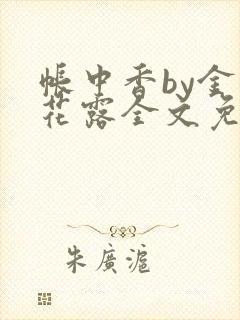 帳中香by金
花露全文免
朱廣滬